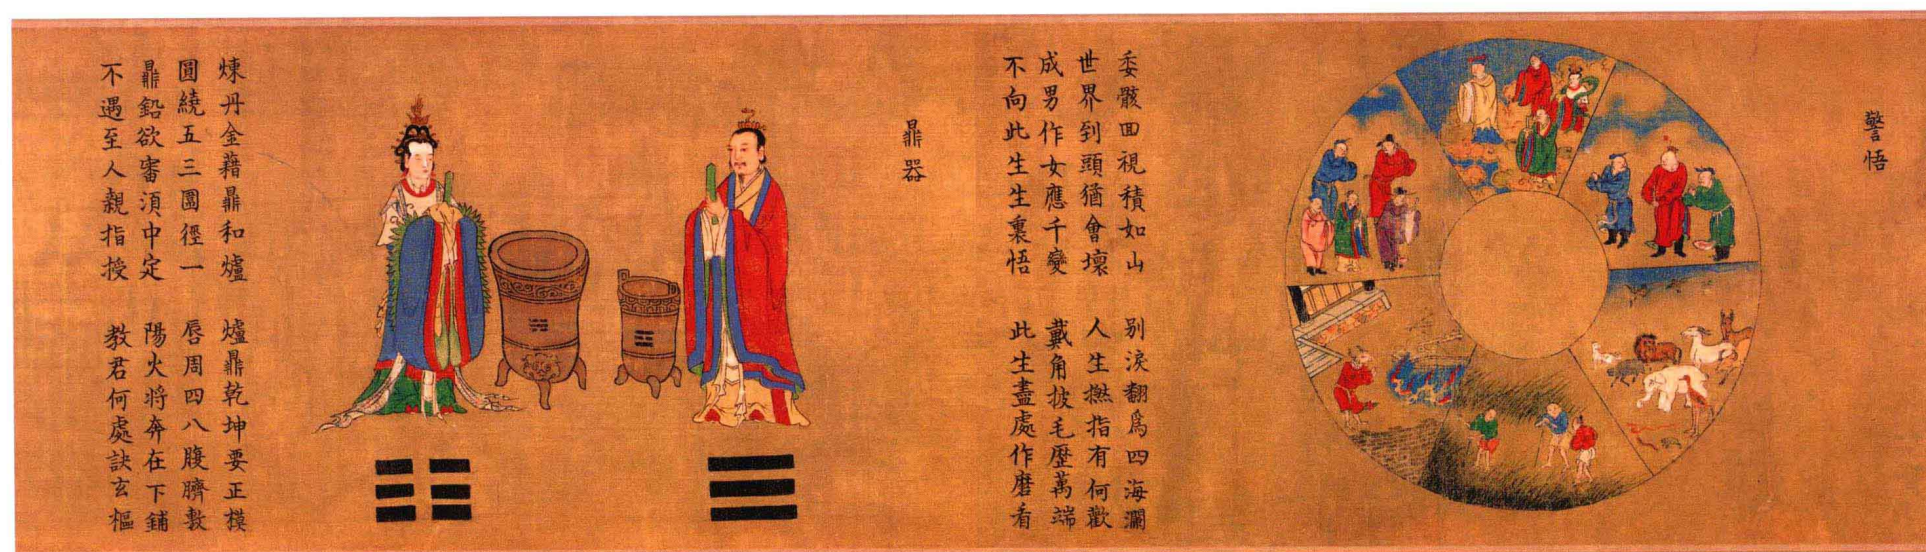 警悟
委骸回視積如山 別淚翻爲四海瀾
世界到頭猶會壞 人生撚指有何歡
成男作女應千變 戴角披毛歷萬端
不向此生生裏悟 此生盡處作磨看
鼎器
煉丹金藉鼎和爐 爐鼎乾坤要正模
圓繞五三圜徑一 唇周四八腹臍敷
鼎鉛欲審須中定 陽火將奔在下鋪
不遇至人親指授 教君何處訣玄樞